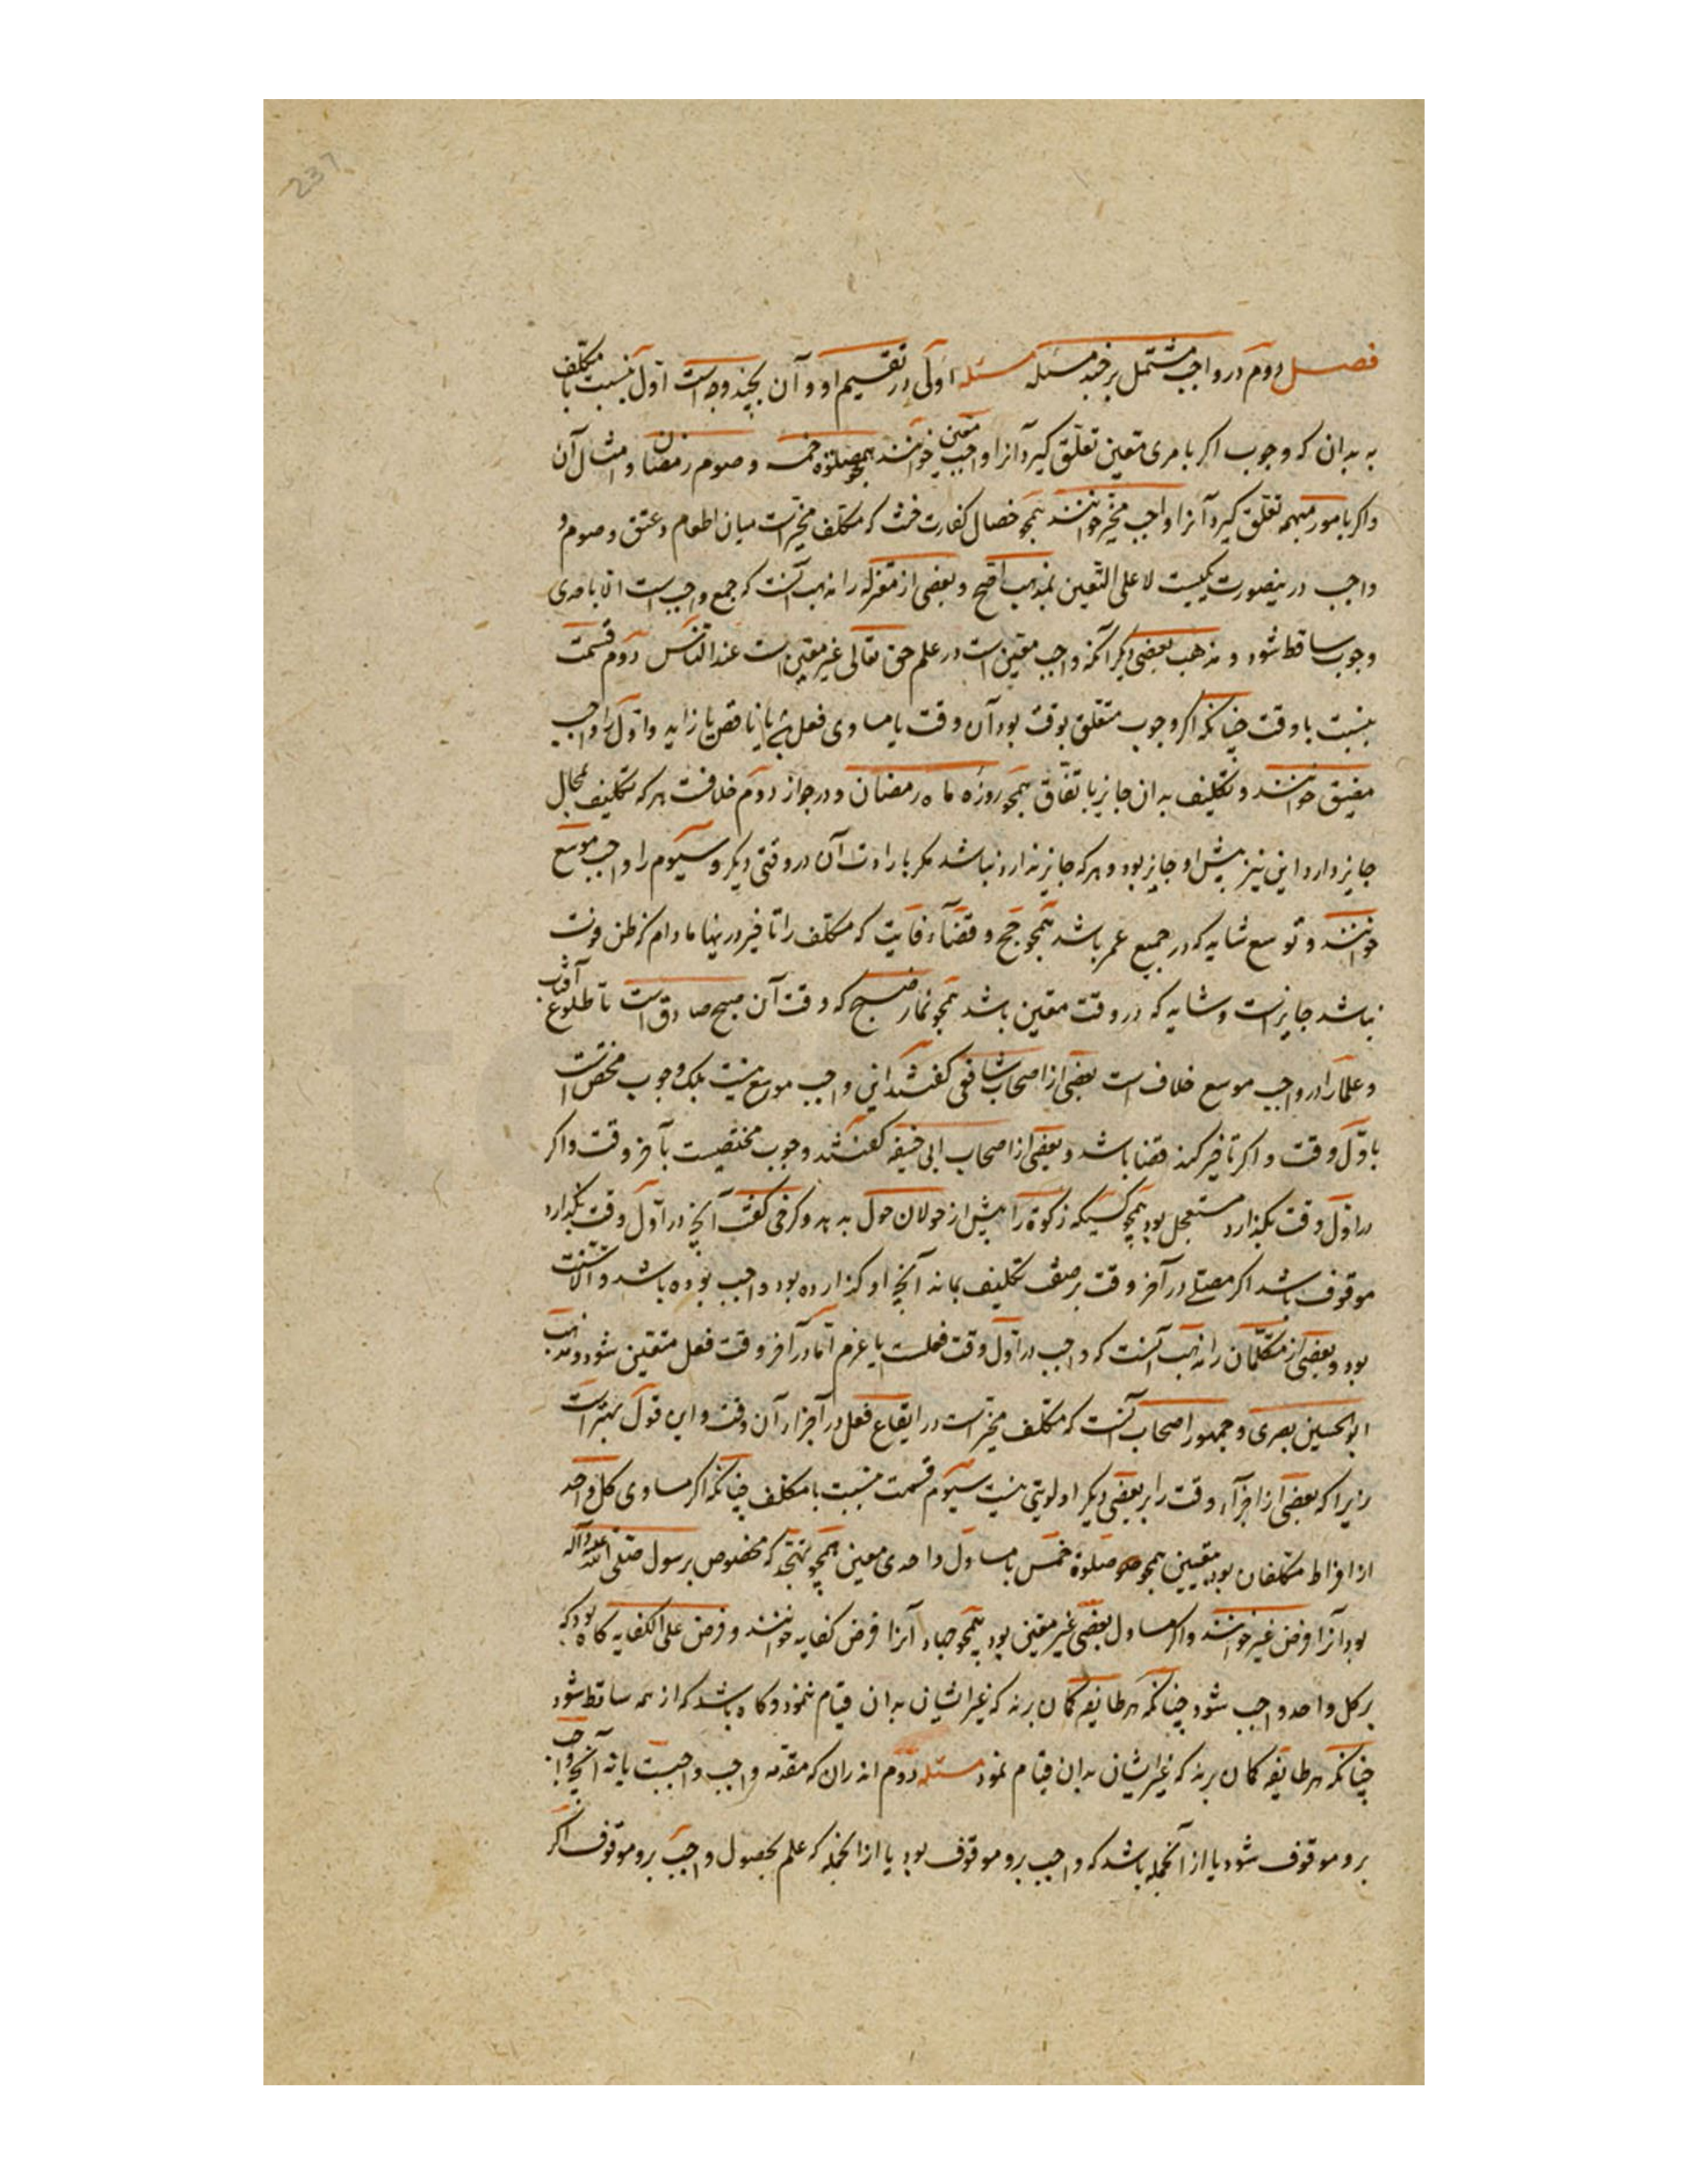 237
فصل دوم در واجب مشتمل بر چند مسئله مسئله اولی در تقسیم او و آن بچند وجه است اول بنسبت با مکلف
به بدان که وجوب اکر بامری معین تعلق کیرد آنرا واجب معین خوانند همچو صلوة خمسه و صوم رمضان و امثال آن
واکر بامور مبهمه تعلق کیرد آنرا واجب مخیر خوانند همچو خصال کفارت حنث که مکلف مخیر است میان اطعام و عتق و صوم و
واجب درینصورت یکیست لا علی التعین بمذهب اصح و بعضی از معتزله را مذهب آنست که جمع واجب است الا باحدی
وجوب ساقط شود و مذهب بعضی دیکر آنکه واجب معین است در علم حق تعالی غیر معین است عند الناس دوم قسمت
بنسبت با وقت چنانکه اکر وجوب متعلق بوقت بود آن وقت یا مساوی فعل باشد یا ناقص یا زاید و اول را واجب
مضیق خوانند و تکلیف بدان جایز باتفاق همچو روزه ماه رمضان و در جواز دوم خلافست هر که تکلیف محال
جایز دارد این نیز پیش او جایز بود و هر که جایز ندارد نباشد مکر بارادت آن در وقتی دیکر و سیوم را واجب موسع
خوانند و توسع شاید که در جمیع عمر باشد همچو حج و قضاء فایت که مکلف را تاخیر درینها مادام که ظن فوت
نباشد جایز است و شاید که در وقت معین باشد همچو نماز صبح که وقت آن صبح صادق است تا طلوع آفتاب
و علما را در واجب موسع خلاف است بعضی از اصحاب شافعی کفتند این واجب موسع نیست بلک وجوب مختص است
باول وقت و اکر تاخیر کند قضا باشد و بعضی از اصحاب ابی حنیفه کفتند وجوب مختصیست بآخر وقت و اکر
در اول وقت بکذارد مستعجل بود همچو کسیکه زکوة را پیش از حولان حول بدهد و کرخی کفت آنچ در اول وقت بکذارد
موقوف باشد اکر مصلی در آخر وقت بر صفت تکلیف بماند آنچ او کذارده بود واجب بوده باشد و الا سنت
بود و بعضی از متکلمان را مذهب آنست که واجب در اول وقت فعلست یا عزم اما در آخر وقت فعل متعین شود و مذهب
ابو الحسین بصری و جمهور اصحاب آنست که مکلف مخیر است در ایقاع فعل در اجزاء آن وقت و این قول بهتر است
زیرا که بعضی از اجزاء وقت را بر بعضی دیکر اولویتی نیست سیوم قسمت بنسبت با مکلف چنانکه اکر مساوی کل واحد
از افراط مکلفان بود معین همچو صلوة خمس یا مساول واحدی معین همچو تهجد که مخصوص برسول صلی الله علیه وآله
بود آنرا فرض عین خوانند و اکر مساول بعضی غیر معین بود همچو جهاد آنرا فرض کفایه خوانند و فرض علی الکفایه کاه بود که
بر کل واحد واجب شود چنانکه هر طایفه کمان برند که غیر ایشان بدان قیام ننمود و کاه باشد که از همه ساقط شود
چنانکه هر طایفه کمان برند که غیر ایشان بدان قیام نمود مسئله دوم اندران که مقدمه واجب واجبست یا نه آنچ واجب
برو موقوف شود یا از آنجمله باشد که واجب برو موقوف بود یا از آنجمله که علم بحصول واجب برو موقوف اکر